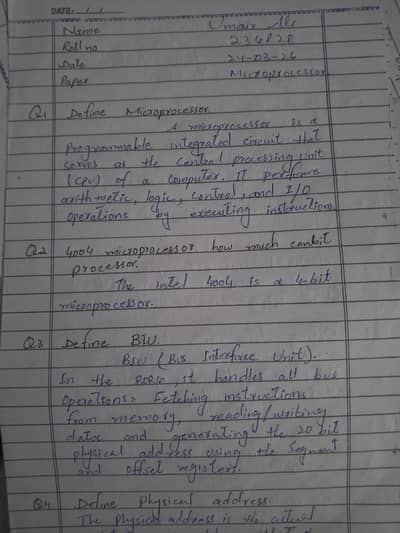 DATE: / /
Name Umair Ali
Roll no
Date 24-03-26
Paper Microprocessor
Q1 Define Microprocessor.
A microprocessor is a
Programmable integrated circuit that
serves as the central processing unit
(CPU) of a computer. IT performs
arithmetic, logic, control, and I/O
operations by executing instructions
Q2 4004 microprocessor how much can bit
processor.
The intel 4004 is a 4-bit
microprocessor.
Q3 Define BIU.
BIU (Bus Interface Unit).
In the 8086, it handles all bus
operations: Fetching instructions
from memory, reading/writing
data and generating the 20 bit
physical address using the Segment
and offset registers.
Q4 Define Physical address.
The Physical address is the actual